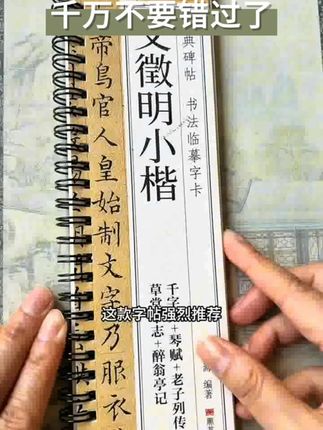 千万不要错过了
典碑帖 书法临摹字卡
文徵明小楷
帝鳥官人皇始制文字乃服衣
千字文+琴赋+老子列传
草堂十志+醉翁亭记
编著
这款字帖强烈推荐